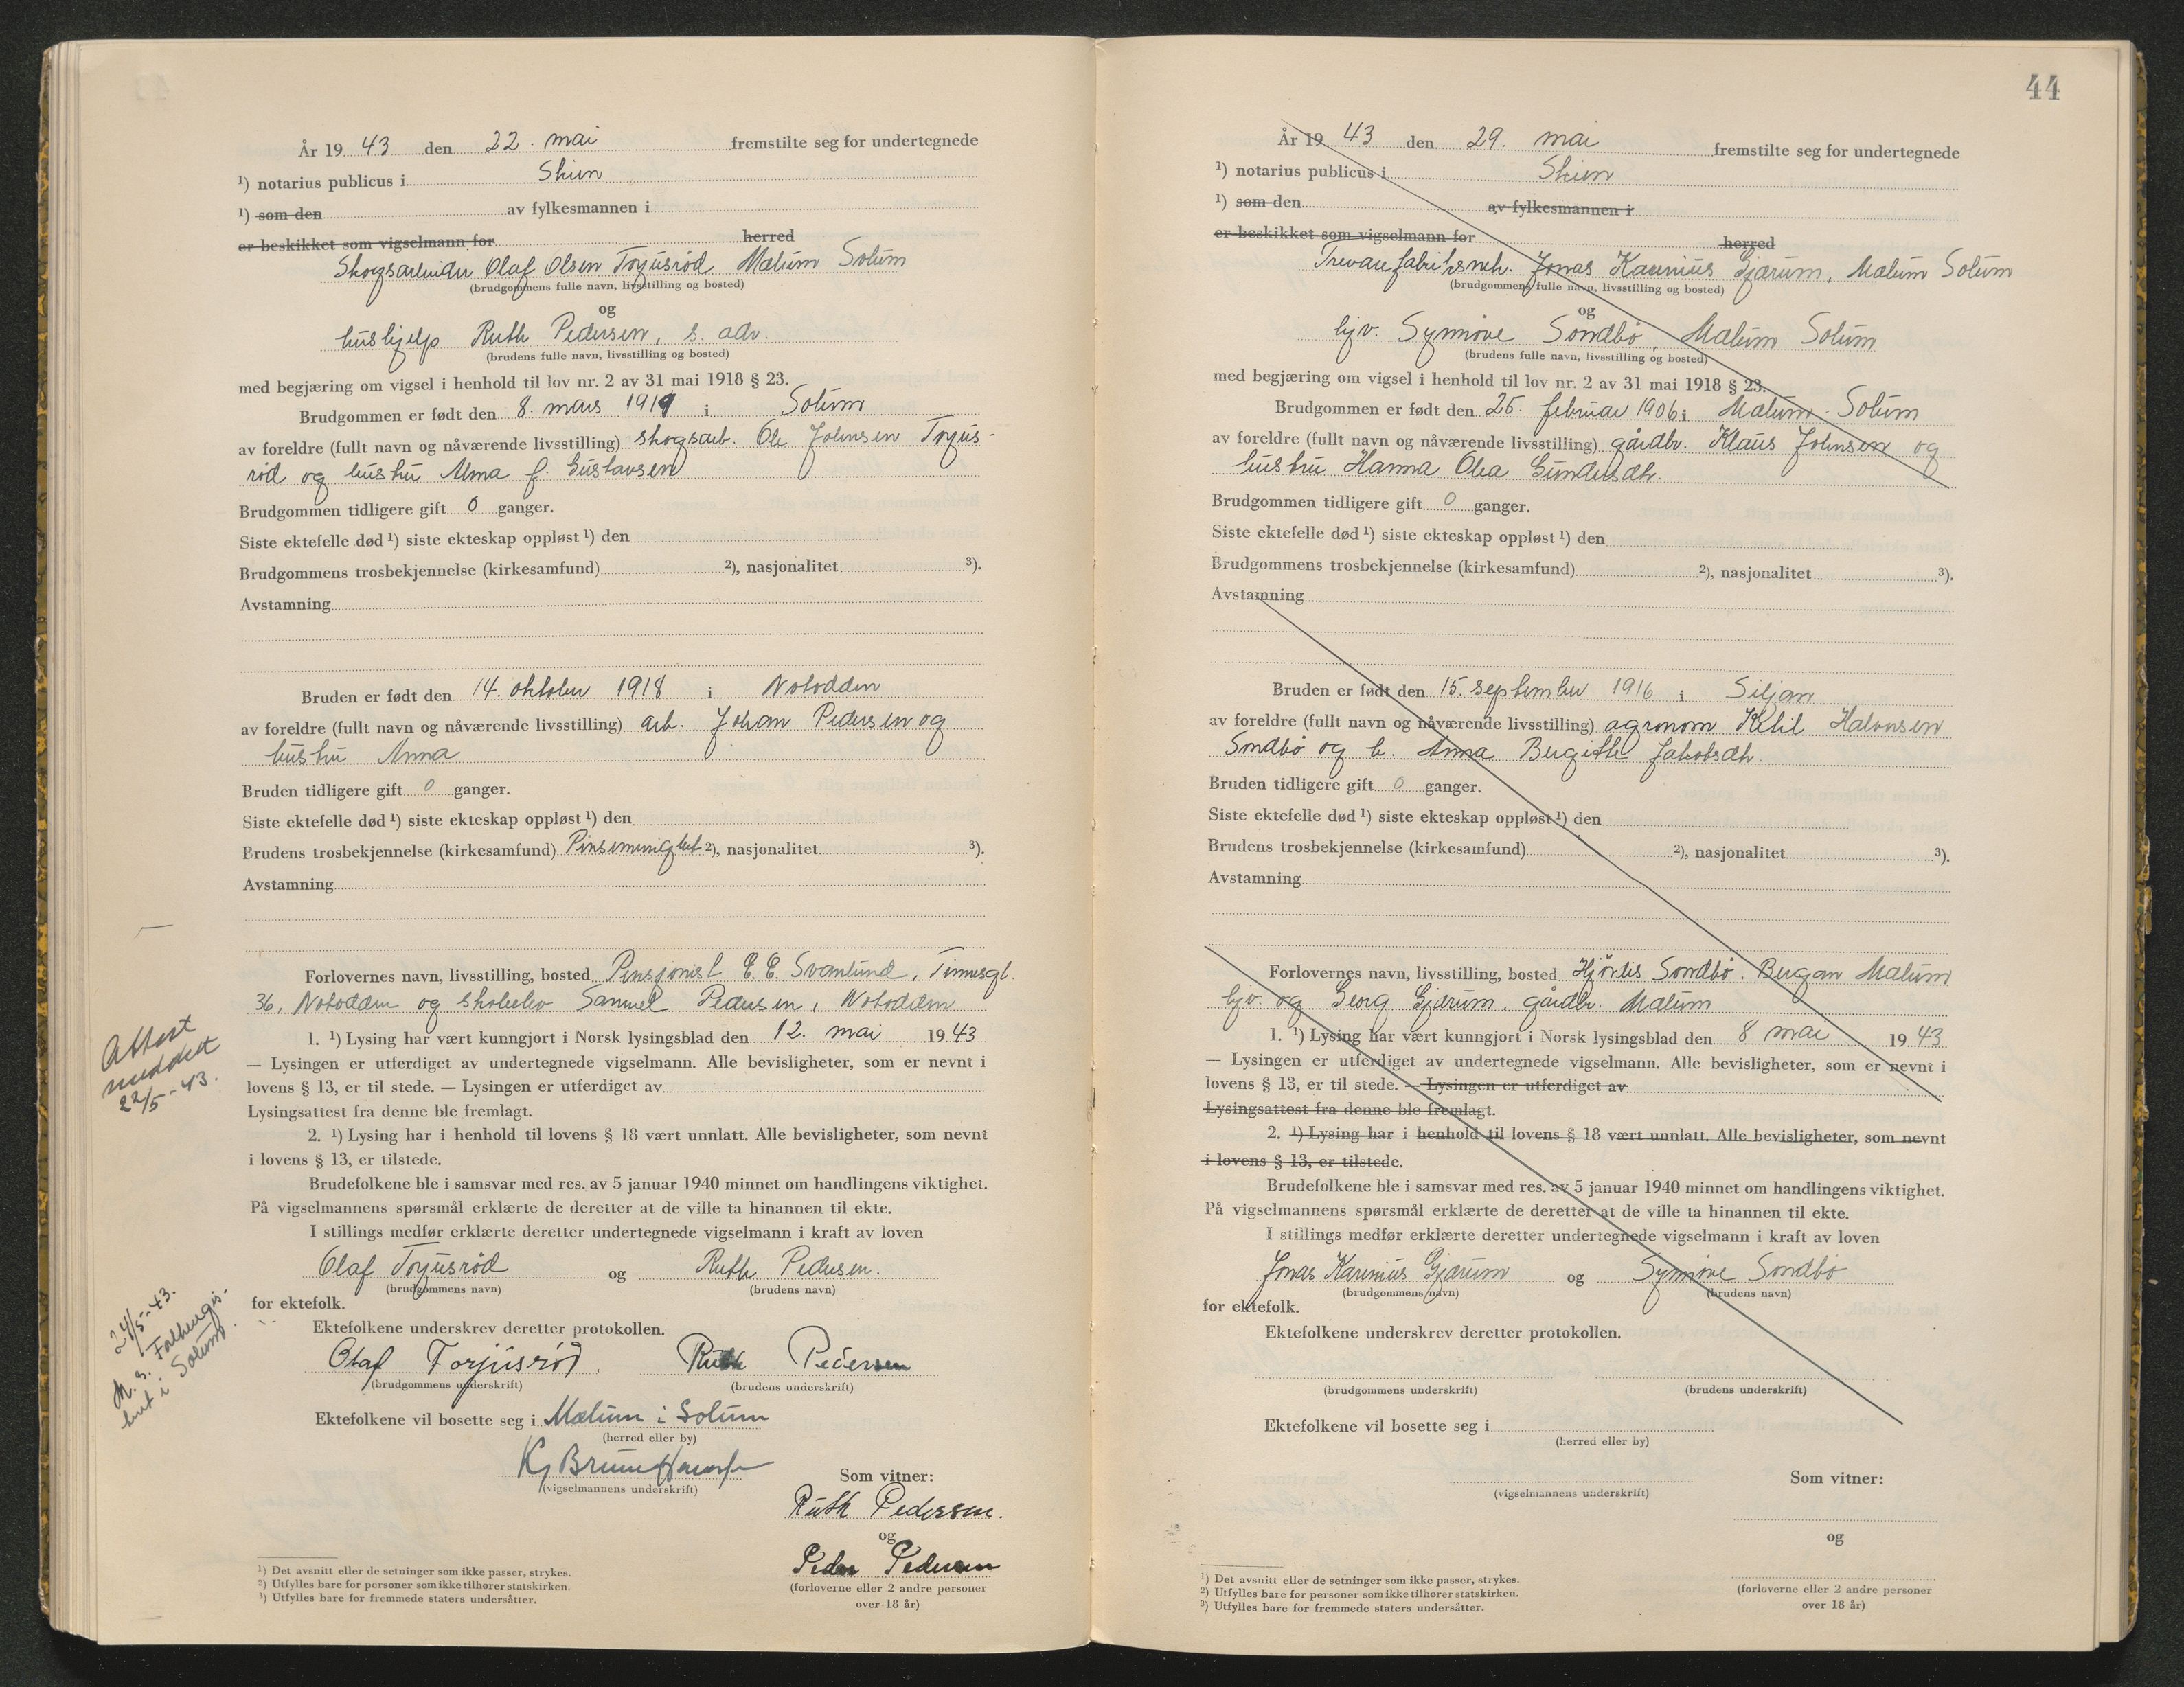 År 19 43 den 22. mai fremstilte seg for undertegnede
¹) notarius publicus i Skien
¹) som den av fylkesmannen i
er beskikket som vigselmann for herred
Skogsarbeider Olaf Olsen Torjusrød Mælum Solum
(brudgommens fulle navn, livsstilling og bosted)
og
hushjelp Ruth Pedersen, s. adr.
(brudens fulle navn, livsstilling og bosted)
med begjæring om vigsel i henhold til lov nr. 2 av 31 mai 1918 § 23.
Brudgommen er født den 8. mars 1919 i Solum
av foreldre (fullt navn og nåværende livsstilling) skogsarb. Ole Johnsen Torjus-
rød og hustru Alma f. Gustavsen
Brudgommen tidligere gift 0 ganger.
Siste ektefelle død ¹) siste ekteskap oppløst ¹) den
Brudgommens trosbekjennelse (kirkesamfund) ²), nasjonalitet ³).
Avstamning
Bruden er født den 14. oktober 1918 i Notodden
av foreldre (fullt navn og nåværende livsstilling) arb. Johan Pedersen og
hustru Anna
Bruden tidligere gift 0 ganger.
Siste ektefelle død ¹) siste ekteskap oppløst ¹) den
Brudens trosbekjennelse (kirkesamfund) Pinsemenighet ²), nasjonalitet ³).
Avstamning
Forlovernes navn, livsstilling, bosted Pensjonist E. E. Svanlund, Tinnesgt.
36, Notodden og skoelev Samuel Pedersen, Notodden
1. ¹) Lysing har vært kunngjort i Norsk lysingsblad den 12. mai 19 43
— Lysingen er utferdiget av undertegnede vigselmann. Alle bevisligheter, som er nevnt i
lovens § 13, er til stede. — Lysingen er utferdiget av
Lysingsattest fra denne ble fremlagt.
2. ¹) Lysing har i henhold til lovens § 18 vært unnlatt. Alle bevisligheter, som nevnt
i lovens § 13, er tilstede.
Brudefolkene ble i samsvar med res. av 5 januar 1940 minnet om handlingens viktighet.
På vigselmannens spørsmål erklærte de deretter at de ville ta hinannen til ekte.
I stillings medfør erklærte deretter undertegnede vigselmann i kraft av loven
Olaf Torjusrød og Ruth Pedersen.
(brudgommens navn) (brudens navn)
for ektefolk.
Ektefolkene underskrev deretter protokollen.
Olaf Torjusrød. Ruth Pedersen
(brudgommens underskrift) (brudens underskrift)
Ektefolkene vil bosette seg i Mælum i Solum
(herred eller by)
(vigselmannens underskrift)
Som vitner:
Ruth Pedersen.
og
Peder Pedersen
(forloverne eller 2 andre personer
over 18 år)
¹) Det avsnitt eller de setninger som ikke passer, strykes.
²) Utfylles bare for personer som ikke tilhører statskirken.
³) Utfylles bare for fremmede staters undersåtter.
Attest
meddelt
22/5-43.
24/5-43.
M. s. Folkeregis-
teret i Solum.
44
År 19 43 den 29. mai fremstilte seg for undertegnede
¹) notarius publicus i Skien
¹) som den av fylkesmannen i
er beskikket som vigselmann for herred
Trevarefabrikarb. Jonas Karenius Gjærum, Mælum Solum
(brudgommens fulle navn, livsstilling og bosted)
og
hjv. Synnøve Sondbø, Mælum Solum
(brudens fulle navn, livsstilling og bosted)
med begjæring om vigsel i henhold til lov nr. 2 av 31 mai 1918 § 23.
Brudgommen er født den 25. februar 1906 i Mælum Solum
av foreldre (fullt navn og nåværende livsstilling) gårdbr. Klaus Johnsen og
hustru Hanna Olea Gundersdtr.
Brudgommen tidligere gift 0 ganger.
Siste ektefelle død ¹) siste ekteskap oppløst ¹) den
Brudgommens trosbekjennelse (kirkesamfund) ²), nasjonalitet ³).
Avstamning
Bruden er født den 15. september 1916 i Siljan
av foreldre (fullt navn og nåværende livsstilling) agronom Ketil Halvorsen
Sondbø og h. Anna Bergitte Jakobsdtr.
Bruden tidligere gift 0 ganger.
Siste ektefelle død ¹) siste ekteskap oppløst ¹) den
Brudens trosbekjennelse (kirkesamfund) ²), nasjonalitet ³).
Avstamning
Forlovernes navn, livsstilling, bosted Hjørdis Sondbø. Bergan Mælum
hjv. og Georg Gjærum, gårdbr. Mælum
1. ¹) Lysing har vært kunngjort i Norsk lysingsblad den 8 mai 19 43
— Lysingen er utferdiget av undertegnede vigselmann. Alle bevisligheter, som er nevnt i
lovens § 13, er til stede. — Lysingen er utferdiget av
Lysingsattest fra denne ble fremlagt.
2. ¹) Lysing har i henhold til lovens § 18 vært unnlatt. Alle bevisligheter, som nevnt
i lovens § 13, er tilstede.
Brudefolkene ble i samsvar med res. av 5 januar 1940 minnet om handlingens viktighet.
På vigselmannens spørsmål erklærte de deretter at de ville ta hinannen til ekte.
I stillings medfør erklærte deretter undertegnede vigselmann i kraft av loven
Jonas Karenius Gjærum og Synnøve Sondbø
(brudgommens navn) (brudens navn)
for ektefolk.
Ektefolkene underskrev deretter protokollen.
(brudgommens underskrift) (brudens underskrift)
Ektefolkene vil bosette seg i
(herred eller by)
(vigselmannens underskrift)
Som vitner:
og
(forloverne eller 2 andre personer
over 18 år)
¹) Det avsnitt eller de setninger som ikke passer, strykes.
²) Utfylles bare for personer som ikke tilhører statskirken.
³) Utfylles bare for fremmede staters undersåtter.